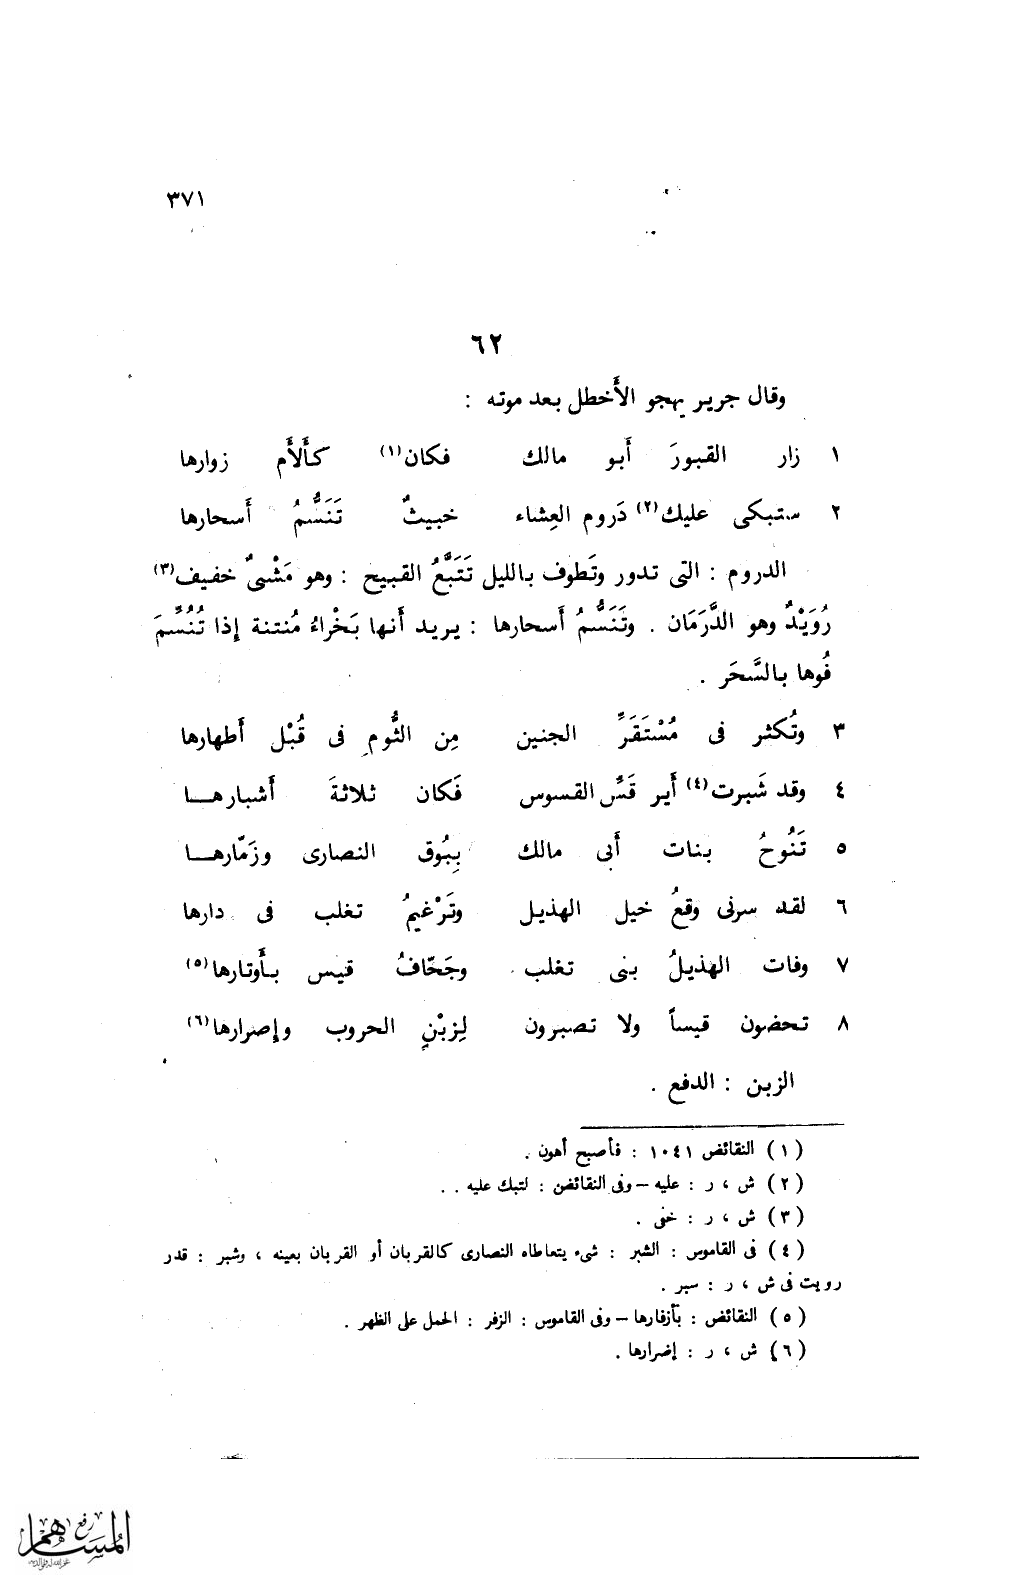 ٣٧١
٦٢
وقال جرير يهجو الأَخطل بعد موته :
١ زار القبورَ أَبو مالك فكان(١) كأَلأَم زوارها
٢ ستبكى عليك(٢) دَروم العِشاء خبيثٌ تَنَسُّمُ أَسحارها
الدروم : التى تدور وتَطوف بالليل تَتَبَّعُ القبيح : وهو مَشْىٌ خفيف(٣)
رُوَيْدٌ وهو الدَّرَمَان . وتَنَسُّمُ أَسحارها : يريد أَنها بَخْراءُ مُنتنة إذا تُنُسِّمَ
فُوها بالسَّحَر .
٣ وتُكثر فى مُسْتَقَرِّ الجنين مِن الثُّومِ فى قُبْل أَطهارها
٤ وقد شَبرت(٤) أَير قَسِّ القسوس فَكان ثلاثةَ أَشبارهـا
٥ تَنُوحُ بنات أَبى مالك بِبُوق النصارى وزَمّارهـا
٦ لقد سرنى وقعُ خيل الهذيل وتَرْغيمُ تغلب فى دارها
٧ وفات الهذيلُ بنى تغلب وجَحّافُ قيس بأَوتارها(٥)
٨ تحضون قيساً ولا تصبرون لِزبْنِ الحروب وإصرارها(٦)
الزبن : الدفع .
(١) النقائض ١٠٤١ : فأصبح أهون .
(٢) ش ، ر : عليه – وفى النقائض : لتبك عليه . .
(٣) ش ، ر : خفى .
(٤) فى القاموس : الشبر : شىء يتعاطاه النصارى كالقربان أو القربان بعينه ، وشبر : قدر
رويت فى ش ، ر : سبر .
(٥) النقائض : بأزفارها – وفى القاموس : الزفر : الحمل على الظهر .
(٦) ش ، ر : إضرارها .